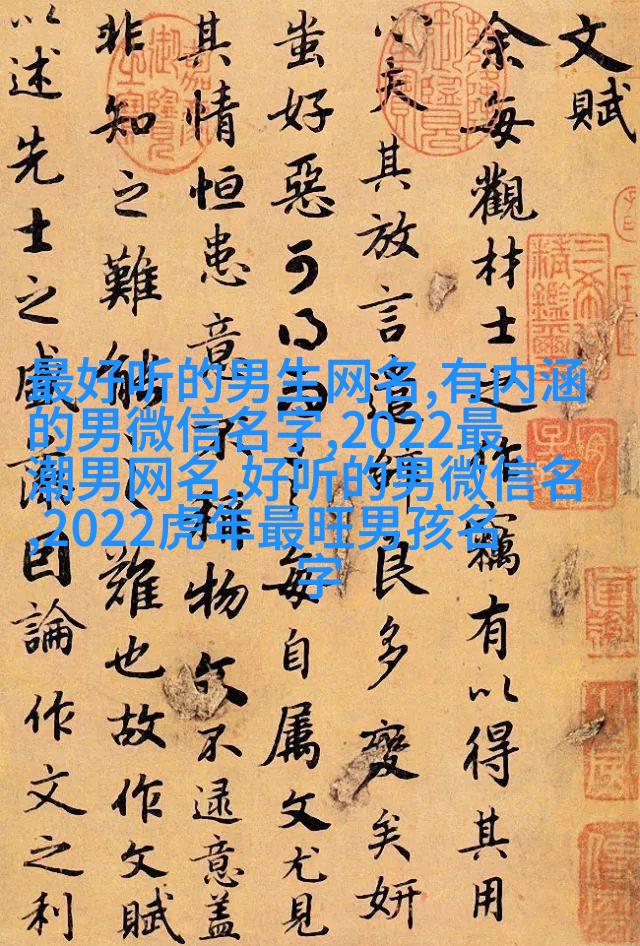 文賦
余每觀材士之作竊有以得其用
心夫其放言遣辭良多變矣妍
蚩好惡可得而言每自属文尤見
其情恒患意不稱物文不逮意蓋
非知之難能之難也故作文賦
以述先士之盛藻因論作文之利
最好听的男生网名,有内涵
的男微信名字,2022最
潮男网名,好听的男微信名
,2022虎年最旺男孩名
字